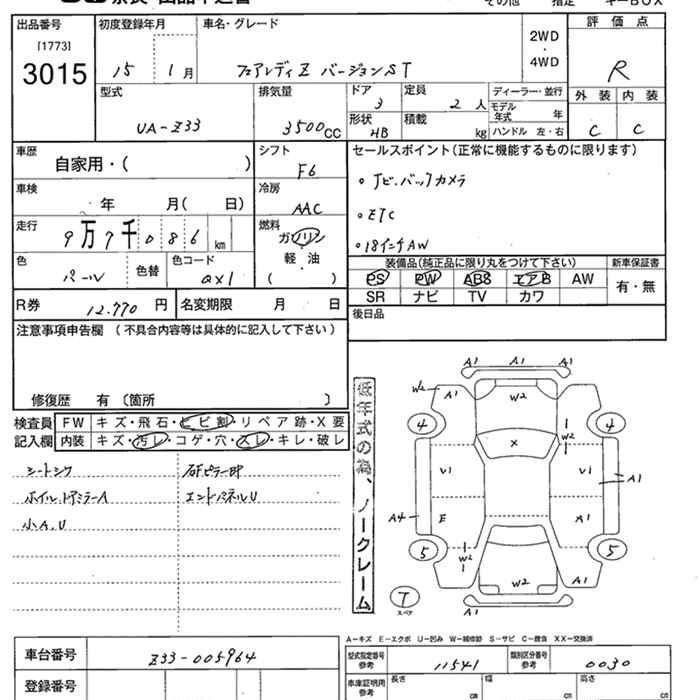 その他 指定 キーBOX
出品番号 初度登録年月 車名・グレード 評価点
[1773]
3015 15 1月 フェアレディZ バージョンST 2WD・4WD R
型式 排気量 ドア 3 定員 2人 ディーラー・並行 外装 内装
UA-Z33 3500CC 形状 HB 積載 kg モデル年式 年 C C
ハンドル 左・右
車歴 自家用・( ) シフト F6 セールスポイント(正常に機能するものに限ります)
車検 年 月( 日) 冷房 AAC
。ナビ.バックカメラ
。ETC
。18インチAW
走行 9万7千086km 燃料 ガソリン・軽油( )
色 パール 色替 色コード QX1
装備品(純正品に限り丸をつけて下さい) 新車保証書
PS PW ABS エアB AW 有・無
SR ナビ TV カワ
R券 12,770円 名変期限 月 日
後日品
注意事項申告欄(不具合内容等は具体的に記入して下さい)
修復歴 有〔箇所 〕
検査員記入欄 FW キズ・飛石・ヒビ割・リペア跡・X要
内装 キズ・汚レ・コゲ・穴・スレ・キレ・破レ
シートシワ
ホイル、ドアミラーA エンドパネルU
小A.U
低年式の為、ノークレーム
A1 A1 A1
W2 A1 W2 A1
4 4
X W2
V1 V1
A1
A4 E A1
5 W2 5
W2 A1
7 スペア A1
A-キズ E-エクボ U-凹み W-補修跡 S-サビ C-腐食 XX-交換済
車台番号 Z33-005964 型式指定番号 参考 11541 類別区分番号 参考 0030
登録番号 車庫証明用 参考 長さ cm 幅 cm 高さ cm